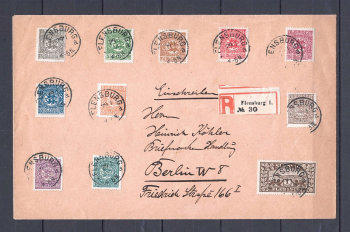 FLENSBURG
FLENSBURG
FLENSBURG
FLENSBURG
FLENSBURG
FLENSBURG
FLENSBURG
Einschreiben
R
Flensburg 1.
№ 30
Herrn
Heinrich Köhler
Briefmarken Handlung
FLENSBURG
FLENSBURG
Berlin W 8
Friedrich Straße 166 I